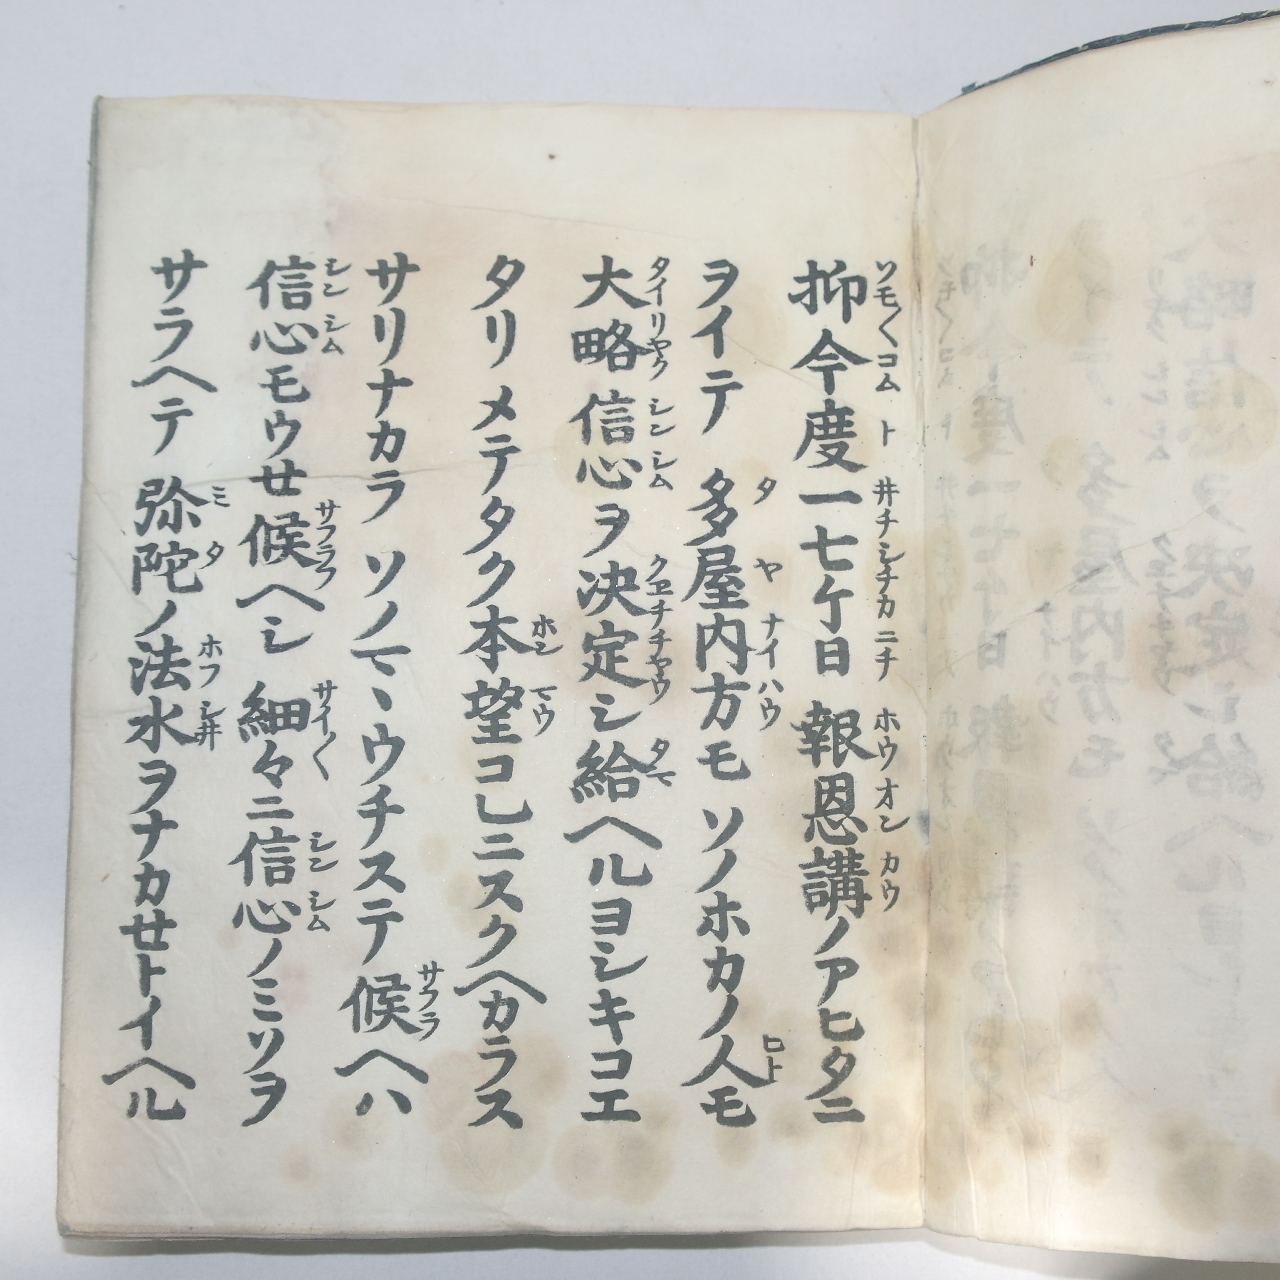 抑今度一七ケ日報恩講ノアヒタニ
ヲイテ多屋内方モソノホカノ人モ
大略信心ヲ決定シ給ヘルヨシキコエ
タリメテタク本望コレニスクヘカラス
サリナカラソノマヽウチステ候ヘハ
信心モウセ候ヘシ細々ニ信心ノミソヲ
サラヘテ弥陀ノ法水ヲナカセトイヘル